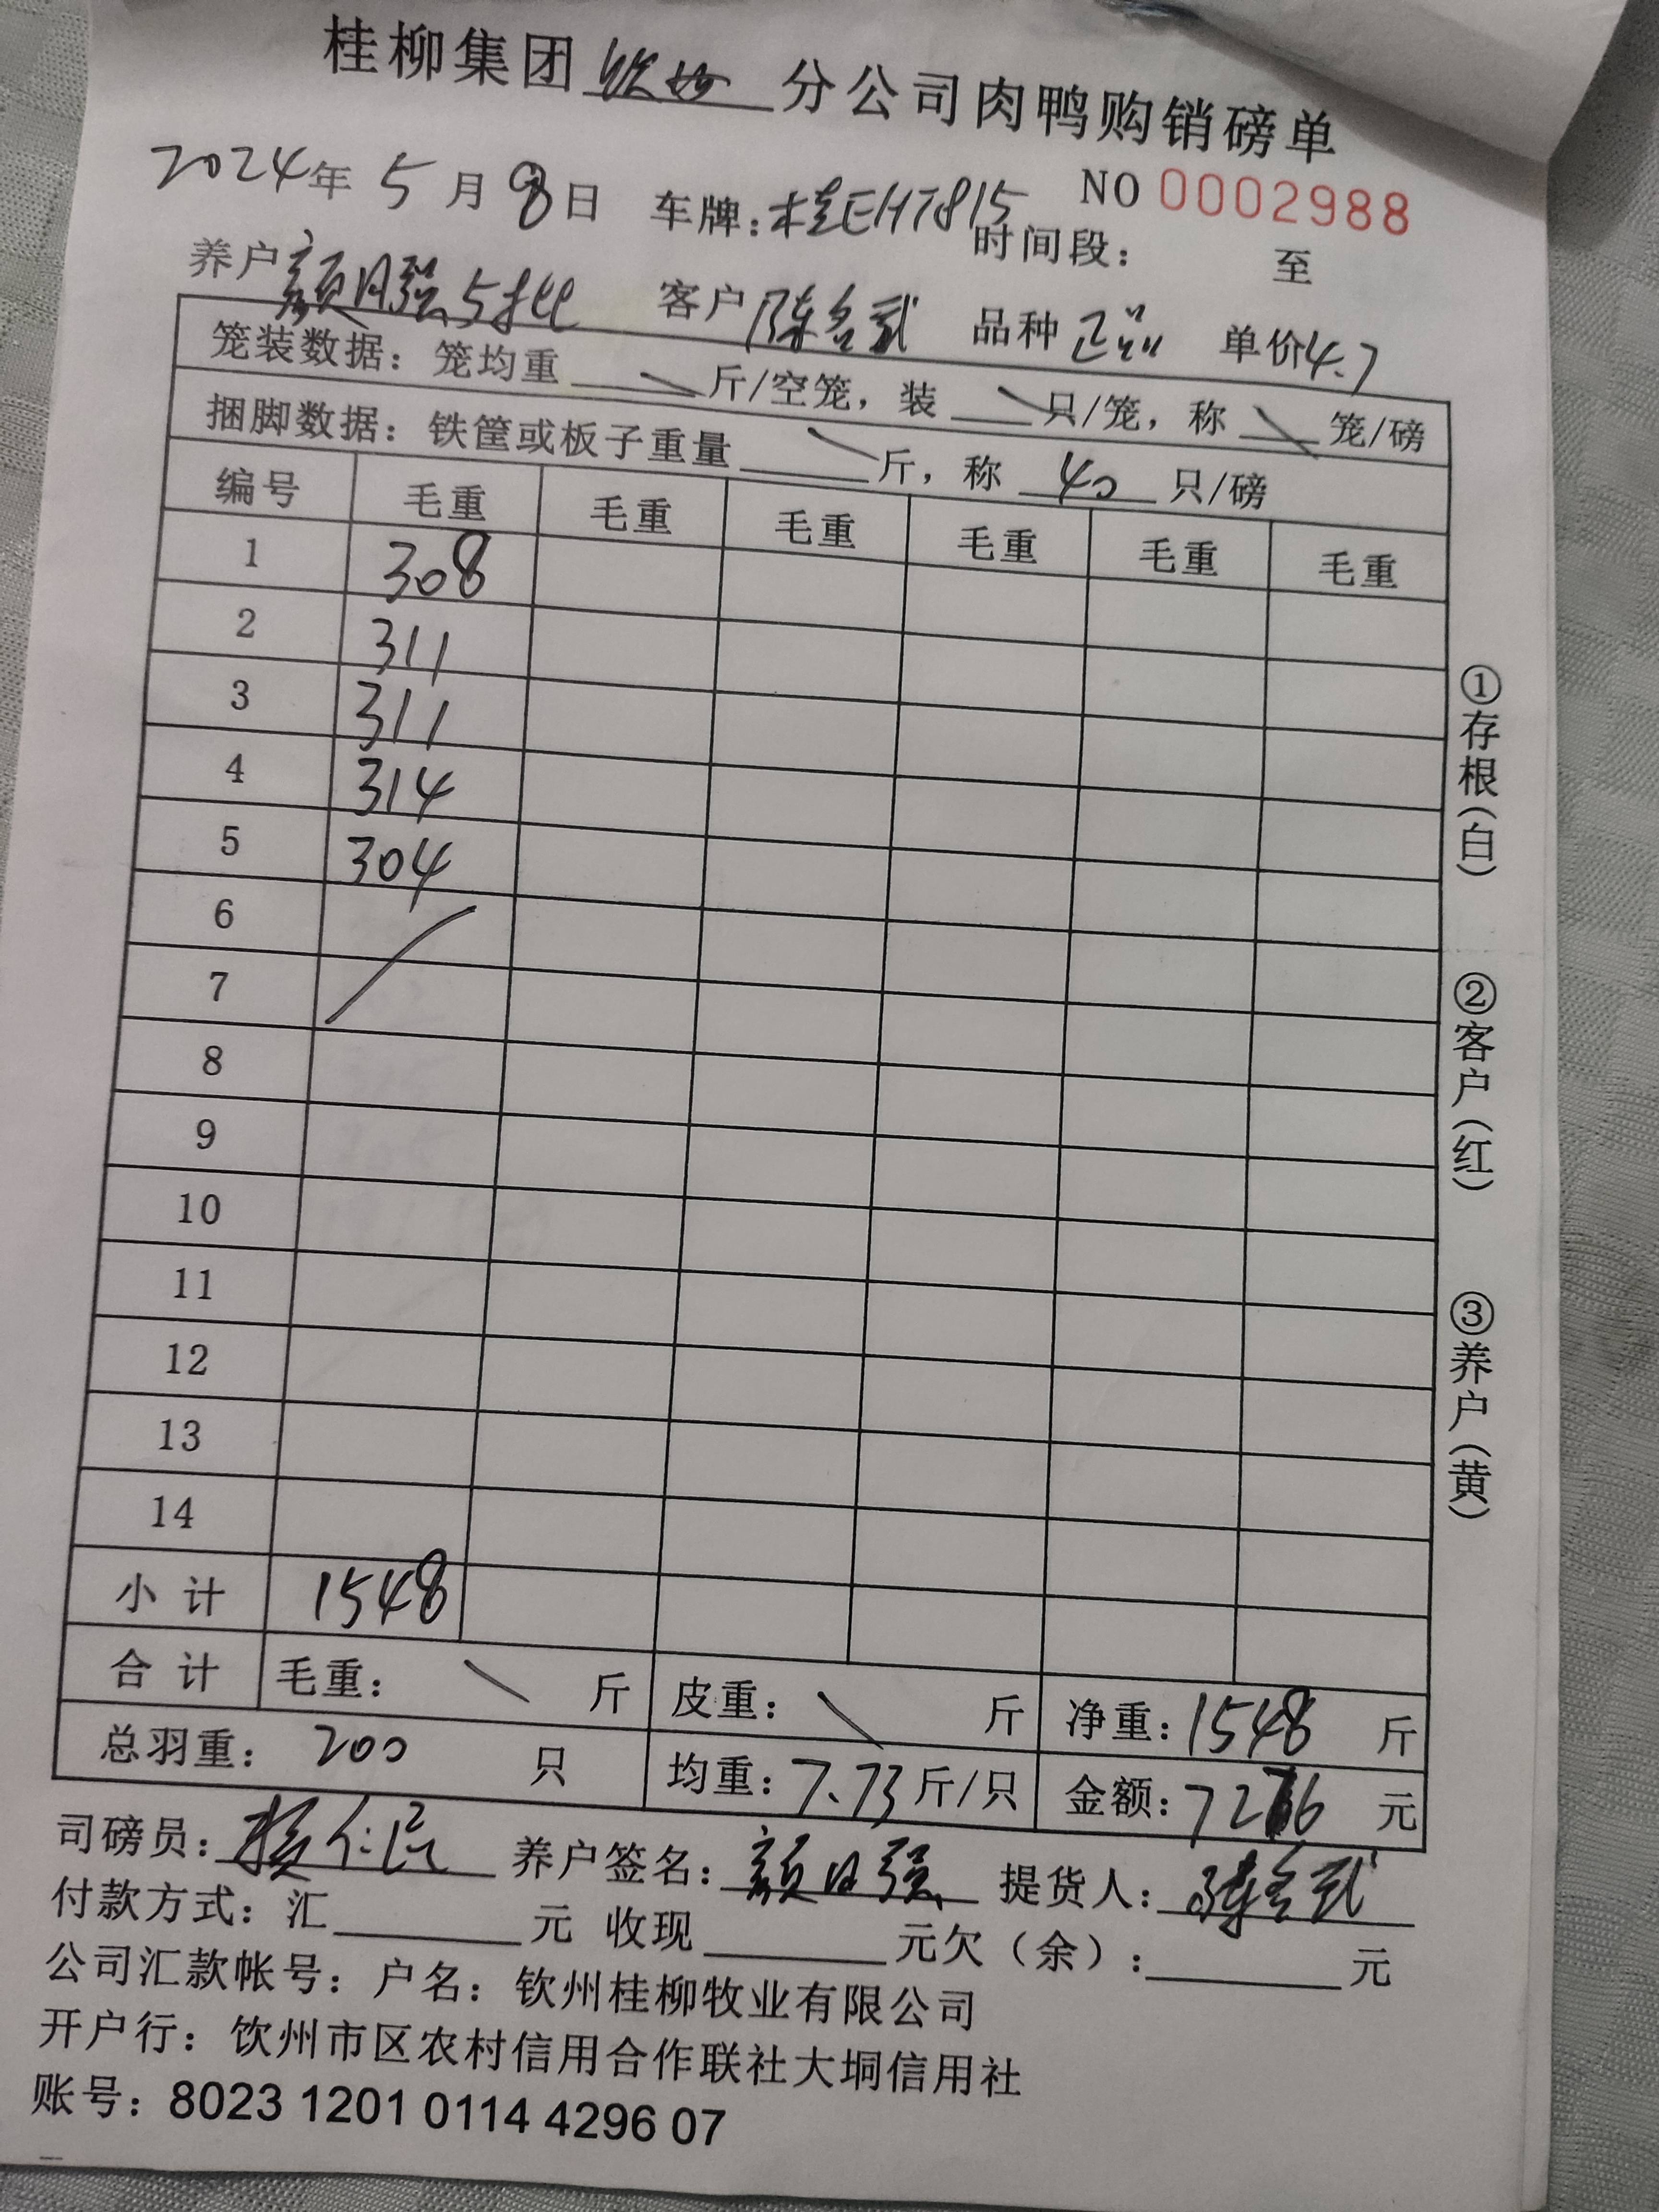 桂柳集团钦州分公司肉鸭购销磅单
NO 0002988
2024年 5 月 8 日 车牌:桂EHT815 时间段: 至
养户颜日强5批 客户陈名武 品种 正品 单价4.7
笼装数据:笼均重 \ 斤/空笼,装 \ 只/笼,称 \ 笼/磅
捆脚数据:铁筐或板子重量 \ 斤,称 40 只/磅
编号 毛重 毛重 毛重 毛重 毛重 毛重
1 308
2 311
3 311
4 314
5 304
6
7
8
9
10
11
12
13
14
小计 1548
合计 毛重: \ 斤 皮重: \ 斤 净重:1548 斤
总羽重: 200 只 均重:7.73斤/只 金额:7276 元
司磅员:杨仁 养户签名:颜日强 提货人:陈名武
付款方式:汇 元 收现 元欠(余): 元
公司汇款帐号:户名:钦州桂柳牧业有限公司
开户行:饮州市区农村信用合作联社大垌信用社
账号:8023 1201 0114 4296 07
①存根(白)
②客户(红)
③养户(黄)